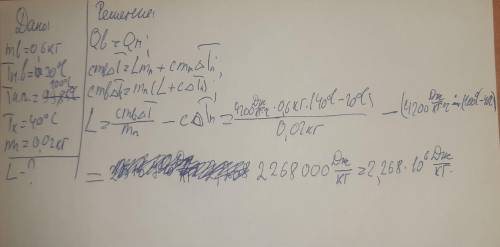 Дано:
mв=0,6кг
Tн.в=20°C
100°C
Tн.п.=
Tк=40°C
mп=0,02кг
L-?
Решение:
Qв=Qп;
cmвΔT=Lmп+cmпΔTп;
cmвΔTв=mп(L+cΔTп)
L=cmвΔT/mп-cΔTп=4200Дж/кг·°C·0,6кг·(40°C-20°C)/0,02кг-(4200Дж/кг·°C·(100°C-40°C)
=2268000Дж/кг=2,268·10⁶Дж/кг.